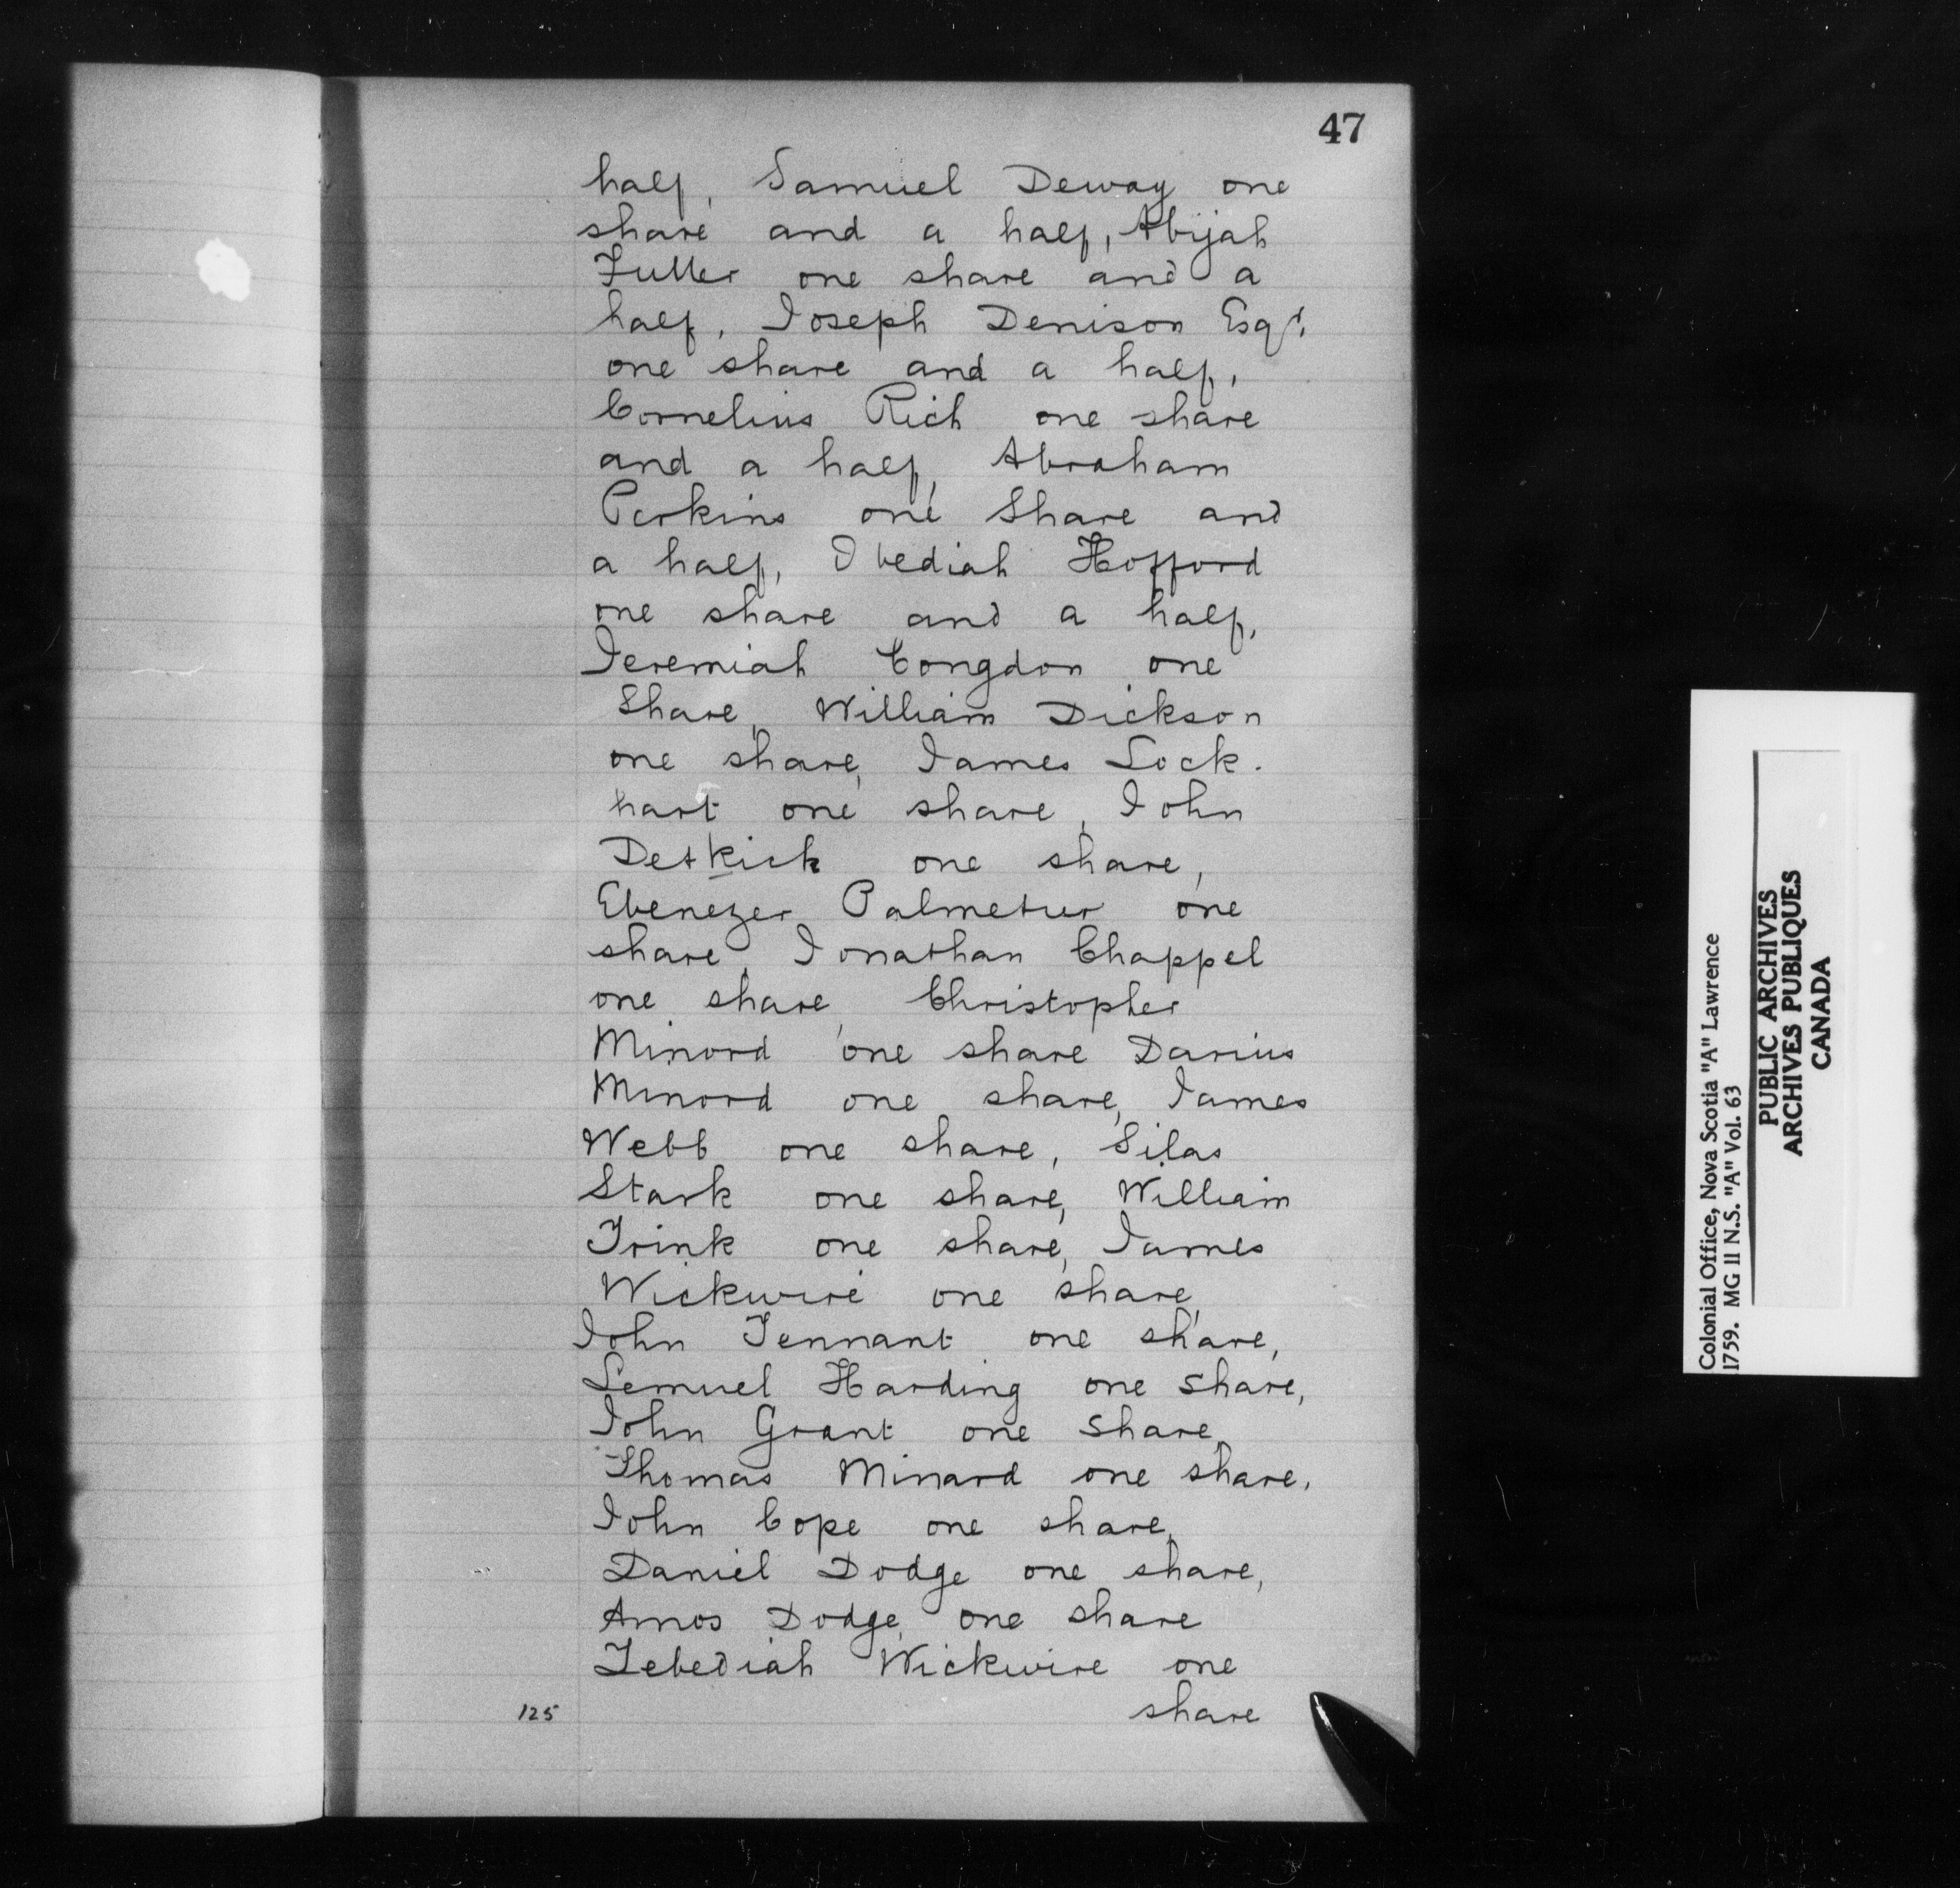 47
half, Samuel Deway one
share and a half, Abijah
Fuller one share and a
half, Joseph Denison Esqr.
one share and a half,
Cornelius Rich one share
and a half, Abraham
Perkins one Share and
a half, Obediah Hofford
one share and a half,
Jeremiah Congdon one
Share, William Dickson
one share, James Lock-
hart one share, John
Detkick one share,
Ebenezer Palmeter one
share, Jonathan Chappel
one share, Christopher
Minord one share Darius
Minord one share, James
Webb one share, Silas
Stark one share, William
Trink one share, James
Wickwire one share,
John Tennant one share,
Lemuel Harding one share,
John Grant one share,
Thomas Minard one share,
John Cope one share,
Daniel Dodge one share,
Amos Dodge, one share
Zebediah Wickwire one
share
125
Colonial Office, Nova Scotia "A" Lawrence
1759. MG 11 N.S. "A" Vol. 63
PUBLIC ARCHIVES
ARCHIVES PUBLIQUES
CANADA